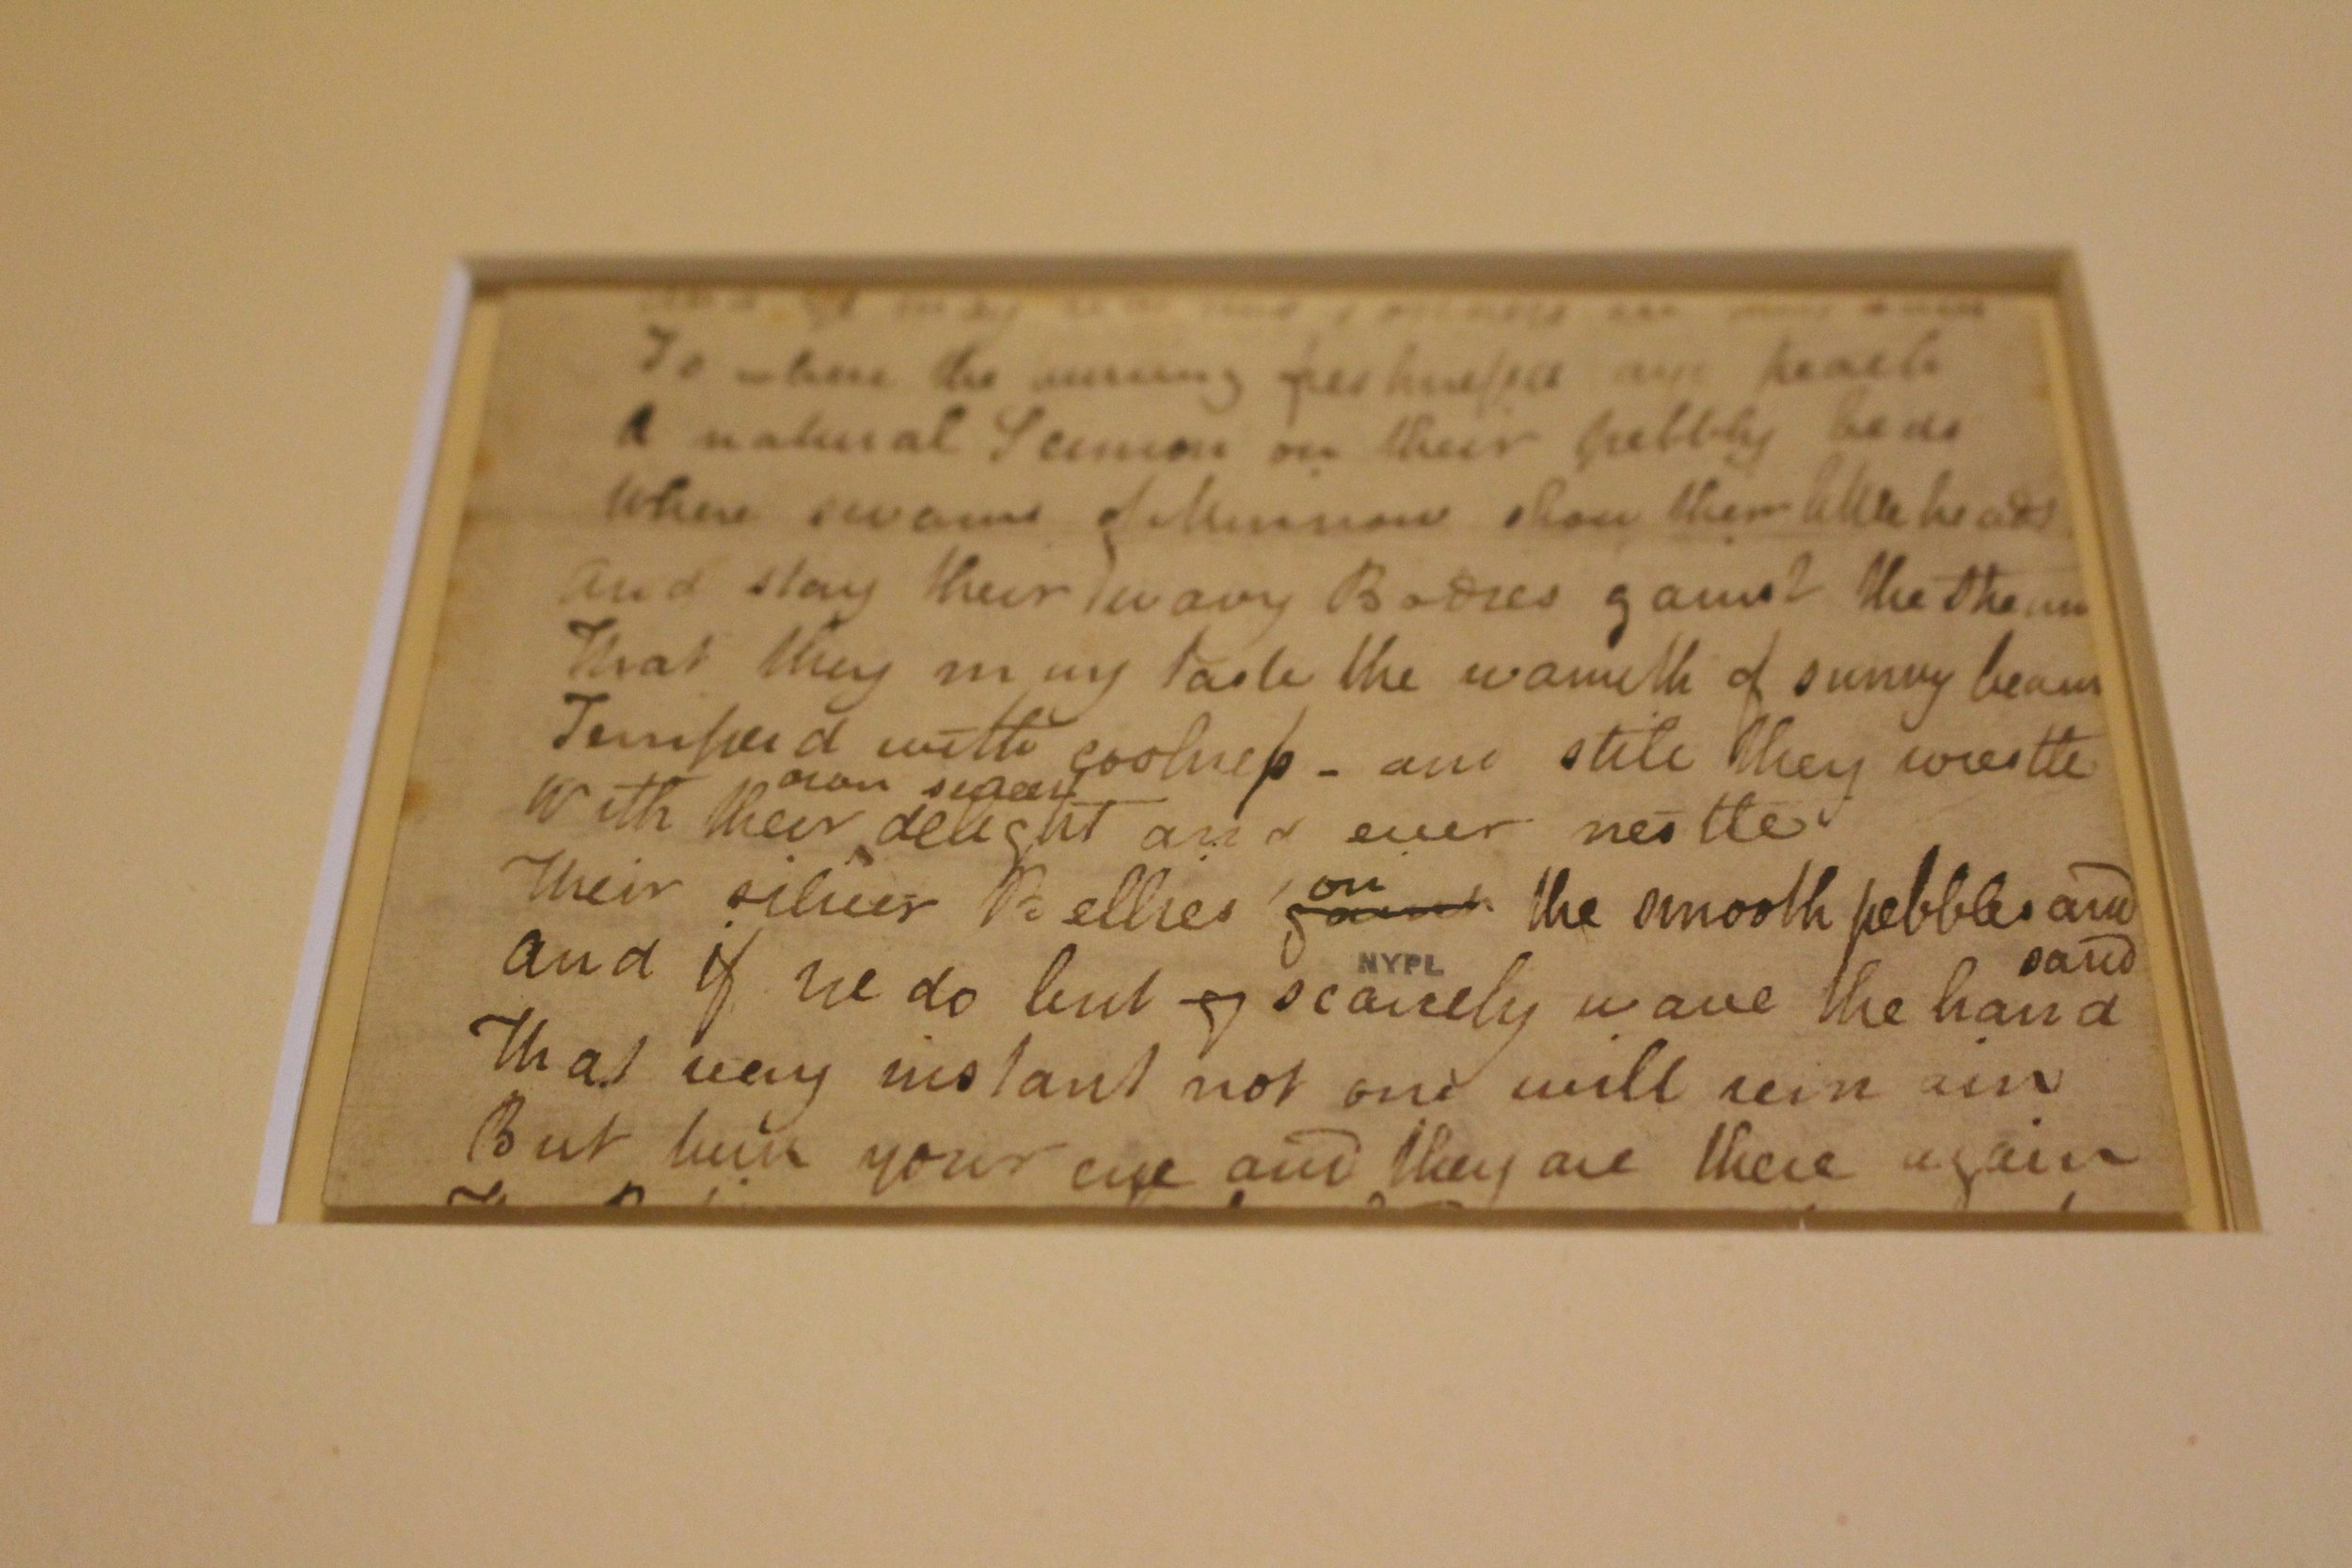 To where the hurrying freshnesses aye preach
A natural Sermon on their pebbly beds
Where swarms of Minnows show their little heads
And stay their wavy Bodies gainst the Stream
That they may taste the warmth of sunny beam
Temperd with coolness - and still they wrestle
own sweet
With their delight and ever nestle
on
Their silver Bellies gainst the smooth pebbles and
sand
NYPL
And if ye do but scarcely wave the hand
That very instant not one will remain
But turn your eye and they are there again